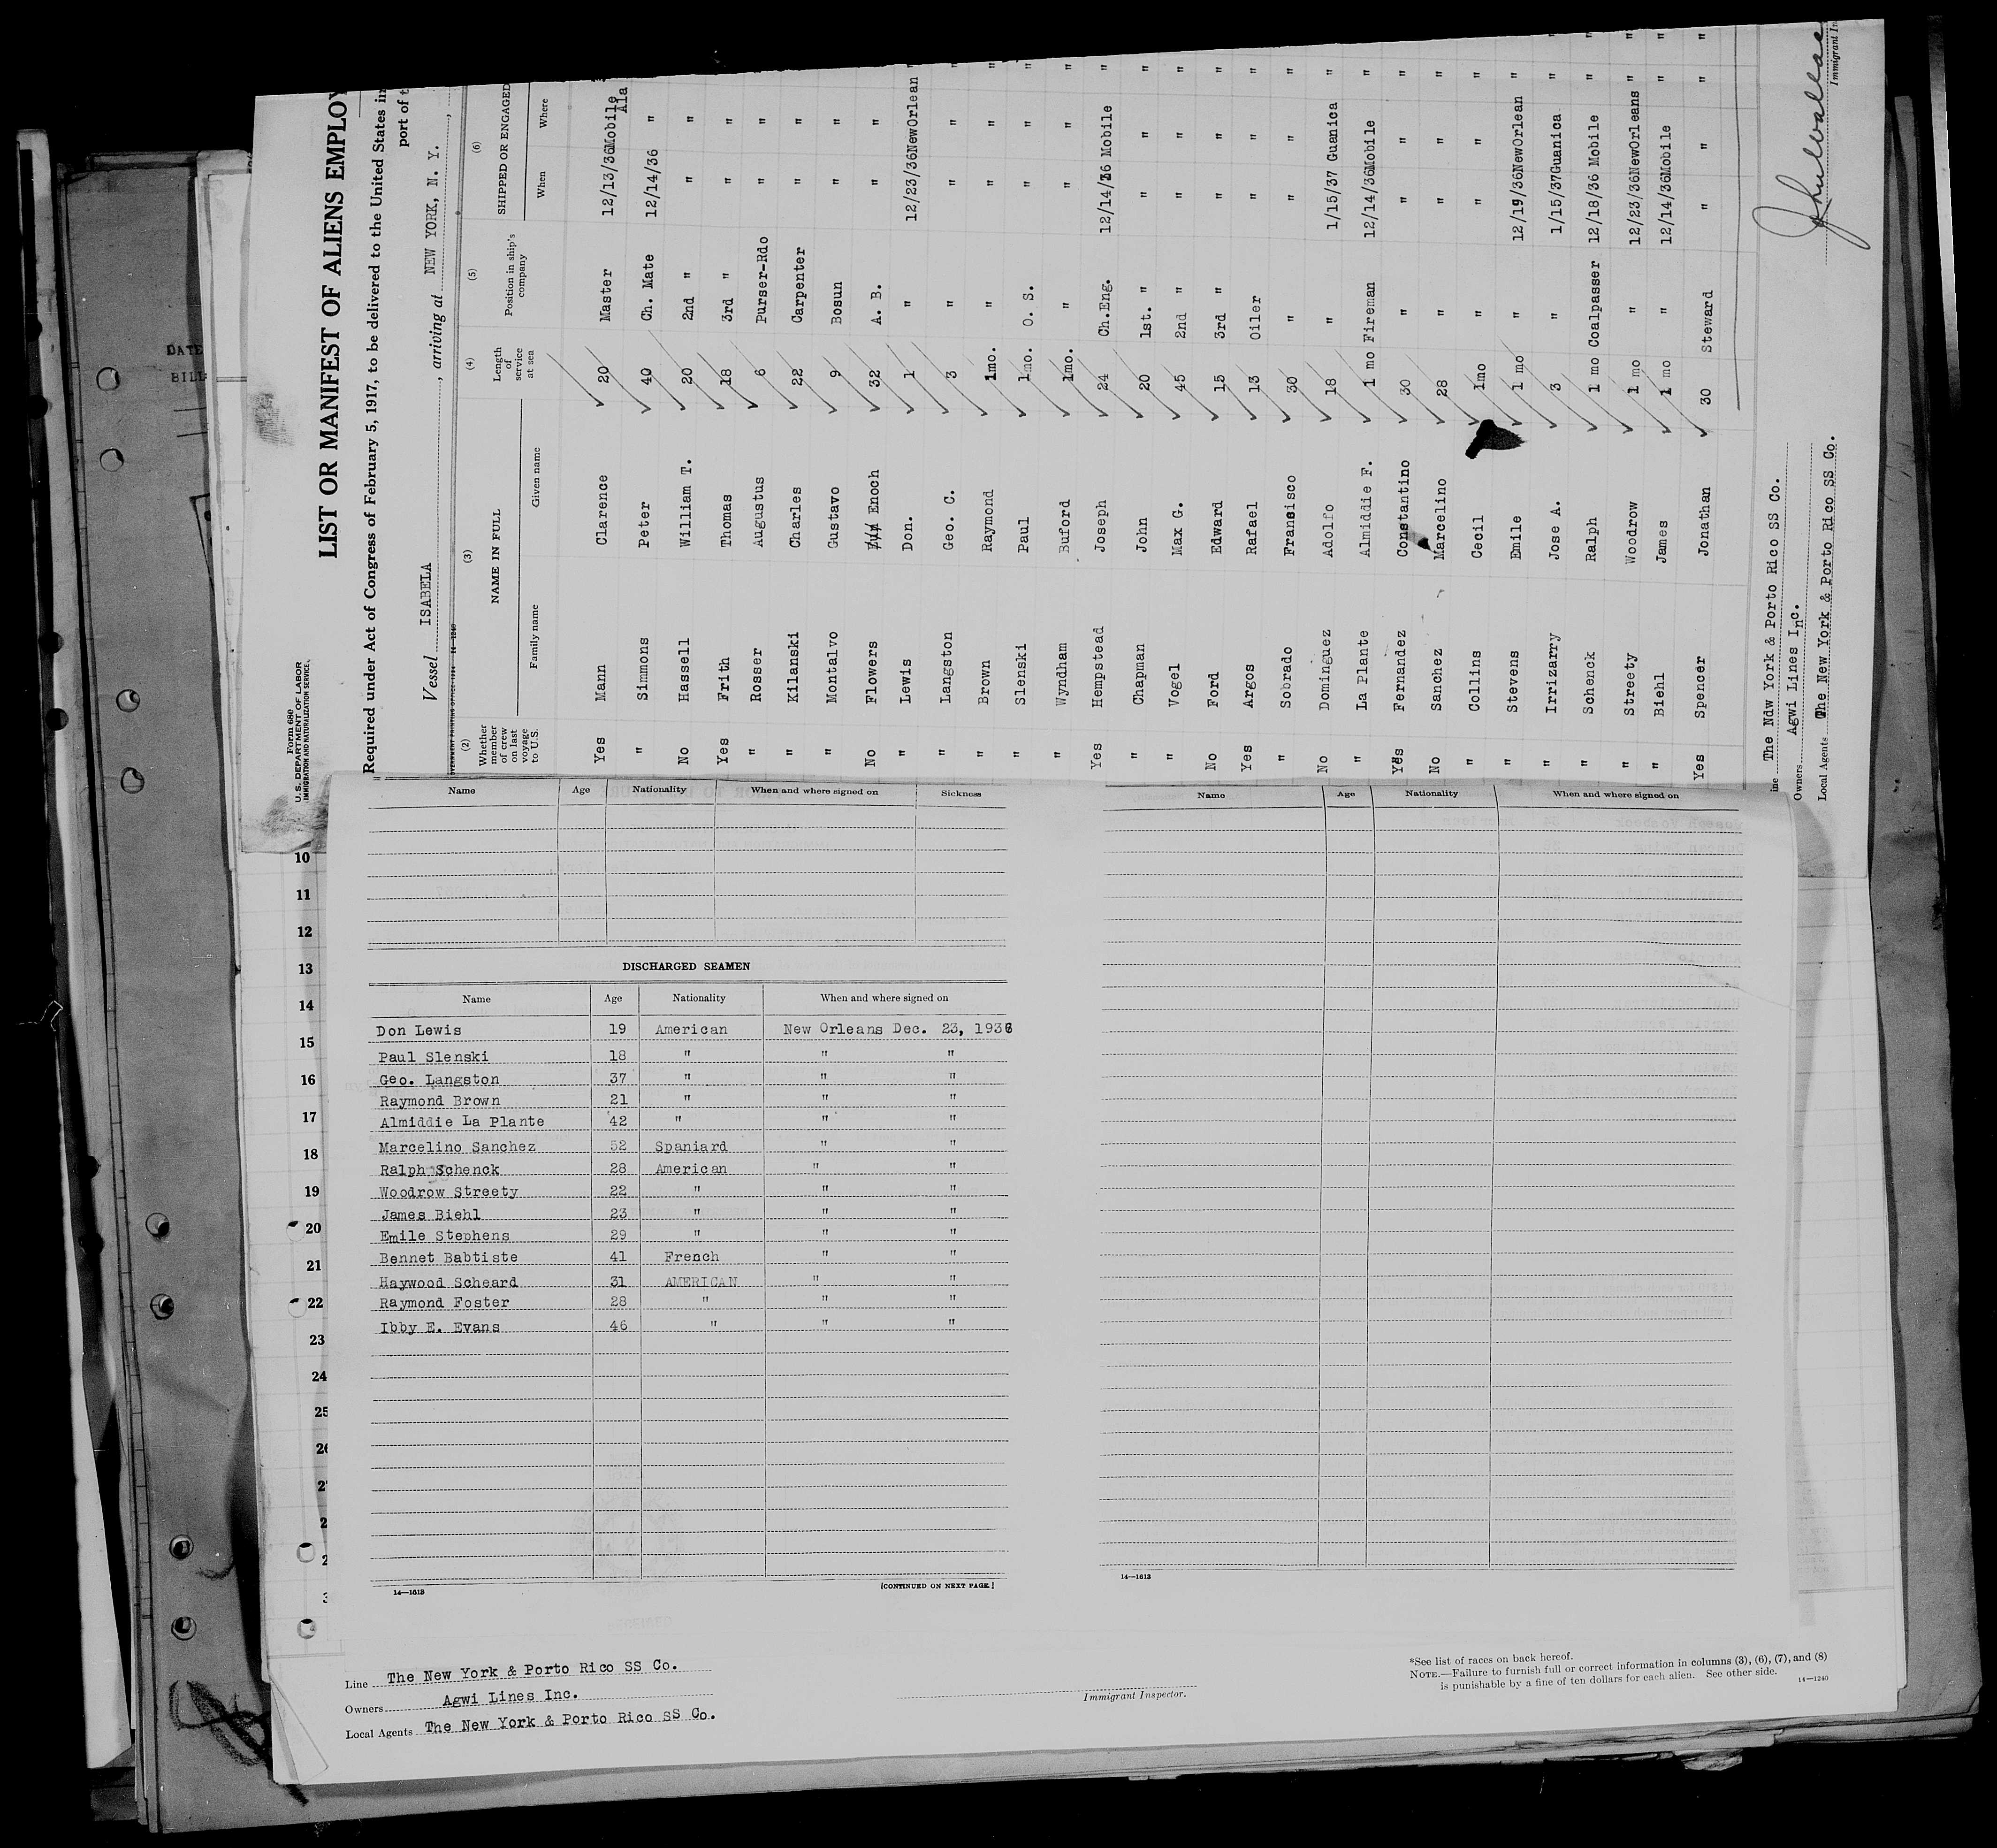 DATE
BILL
Form 680
U.S. DEPARTMENT OF LABOR
IMMIGRATION AND NATURALIZATION SERVICE
LIST OR MANIFEST OF ALIENS EMPLOY
Required under Act of Congress of February 5, 1917, to be delivered to the United States
port of
Vessel ISABELA, arriving at NEW YORK, N. Y.,
(2) (3) (4) (5) (6)
Whether member of crew on last voyage to U.S. NAME IN FULL Length of service at sea Position in ship's company SHIPPED OR ENGAGED
Family name Given name When Where
Yes Mann Clarence 20 Master 12/13/36 Mobile Ala
" Simmons Peter 40 Ch. Mate 12/14/36 "
No Hassell William T. 20 2nd " " "
Yes Frith Thomas 18 3rd " " "
" Rosser Augustus 6 Purser-Rdo " "
" Kilanski Charles 22 Carpenter " "
" Montalvo Gustavo 9 Bosun " "
No Flowers Enoch 32 A. B. " "
" Lewis Don. 1 " 12/23/36NewOrlean "
" Langston Geo. C. 3 " " " "
" Brown Raymond 1mo. " " " "
" Slenski Paul 1mo. O. S. " " "
" Wyndham Buford 1mo. " " " "
Yes Hempstead Joseph 24 Ch.Eng. 12/14/36 Mobile "
" Chapman John 20 1st. " " " "
" Vogel Max G. 45 2nd " " " "
No Ford Edward 15 3rd " " " "
Yes Argos Rafael 13 Oiler " " "
" Sobrado Fransisco 30 " " " "
No Dominguez Adolfo 18 " 1/15/37 Guanica "
" La Plante Almiddie F. 1 mo Fireman 12/14/36Mobile "
Yes Fernandez Constantino 30 " " " "
No Sanchez Marcelino 28 " " " "
" Collins Cecil 1mo " " " "
" Stevens Emile 1 mo " 12/19/36NewOrlean "
" Irrizarry Jose A. 3 " 1/15/37Guanica " "
" Schenck Ralph 1 mo Coalpasser 12/18/36 Mobile " "
" Streety Woodrow 1 mo " 12/23/36NewOrleans " "
" Biehl James 1 mo " 12/14/36Mobile " "
Yes Spencer Jonathan 30 Steward " " " "
The Ndw York & Porto Rico SS Co.
Owners Agwi Lines Inc.
Local Agents The New York & Porto Rico SS Co.
Name Age Nationality When and where signed on Sickness
Name Age Nationality When and where signed on
10
11
12
13
14
15
16
17
18
19
20
21
22
23
24
25
DISCHARGED SEAMEN
Name Age Nationality When and where signed on
Don Lewis 19 American New Orleans Dec. 23, 1936
Paul Slenski 18 " " "
Geo. Langston 37 " " "
Raymond Brown 21 " " "
Almiddie La Plante 42 " " "
Marcelino Sanchez 52 Spaniard " "
Ralph Schenck 28 American " "
Woodrow Streety 22 " " "
James Biehl 23 " " "
Emile Stephens 29 " " "
Bennet Babtiste 41 French " "
Haywood Scheard 31 AMERICAN " "
Raymond Foster 28 " " "
Ibby E. Evans 46 " " "
14—1613 [CONTINUED ON NEXT PAGE]
14—1613
Line The New York & Porto Rico SS Co.
Owners Agwi Lines Inc.
Local Agents The New York & Porto Rico SS Co.
Immigrant Inspector.
*See list of races on back hereof.
NOTE.—Failure to furnish full or correct information in columns (3), (6), (7), and (8)
is punishable by a fine of ten dollars for each alien. See other side. 14—1240